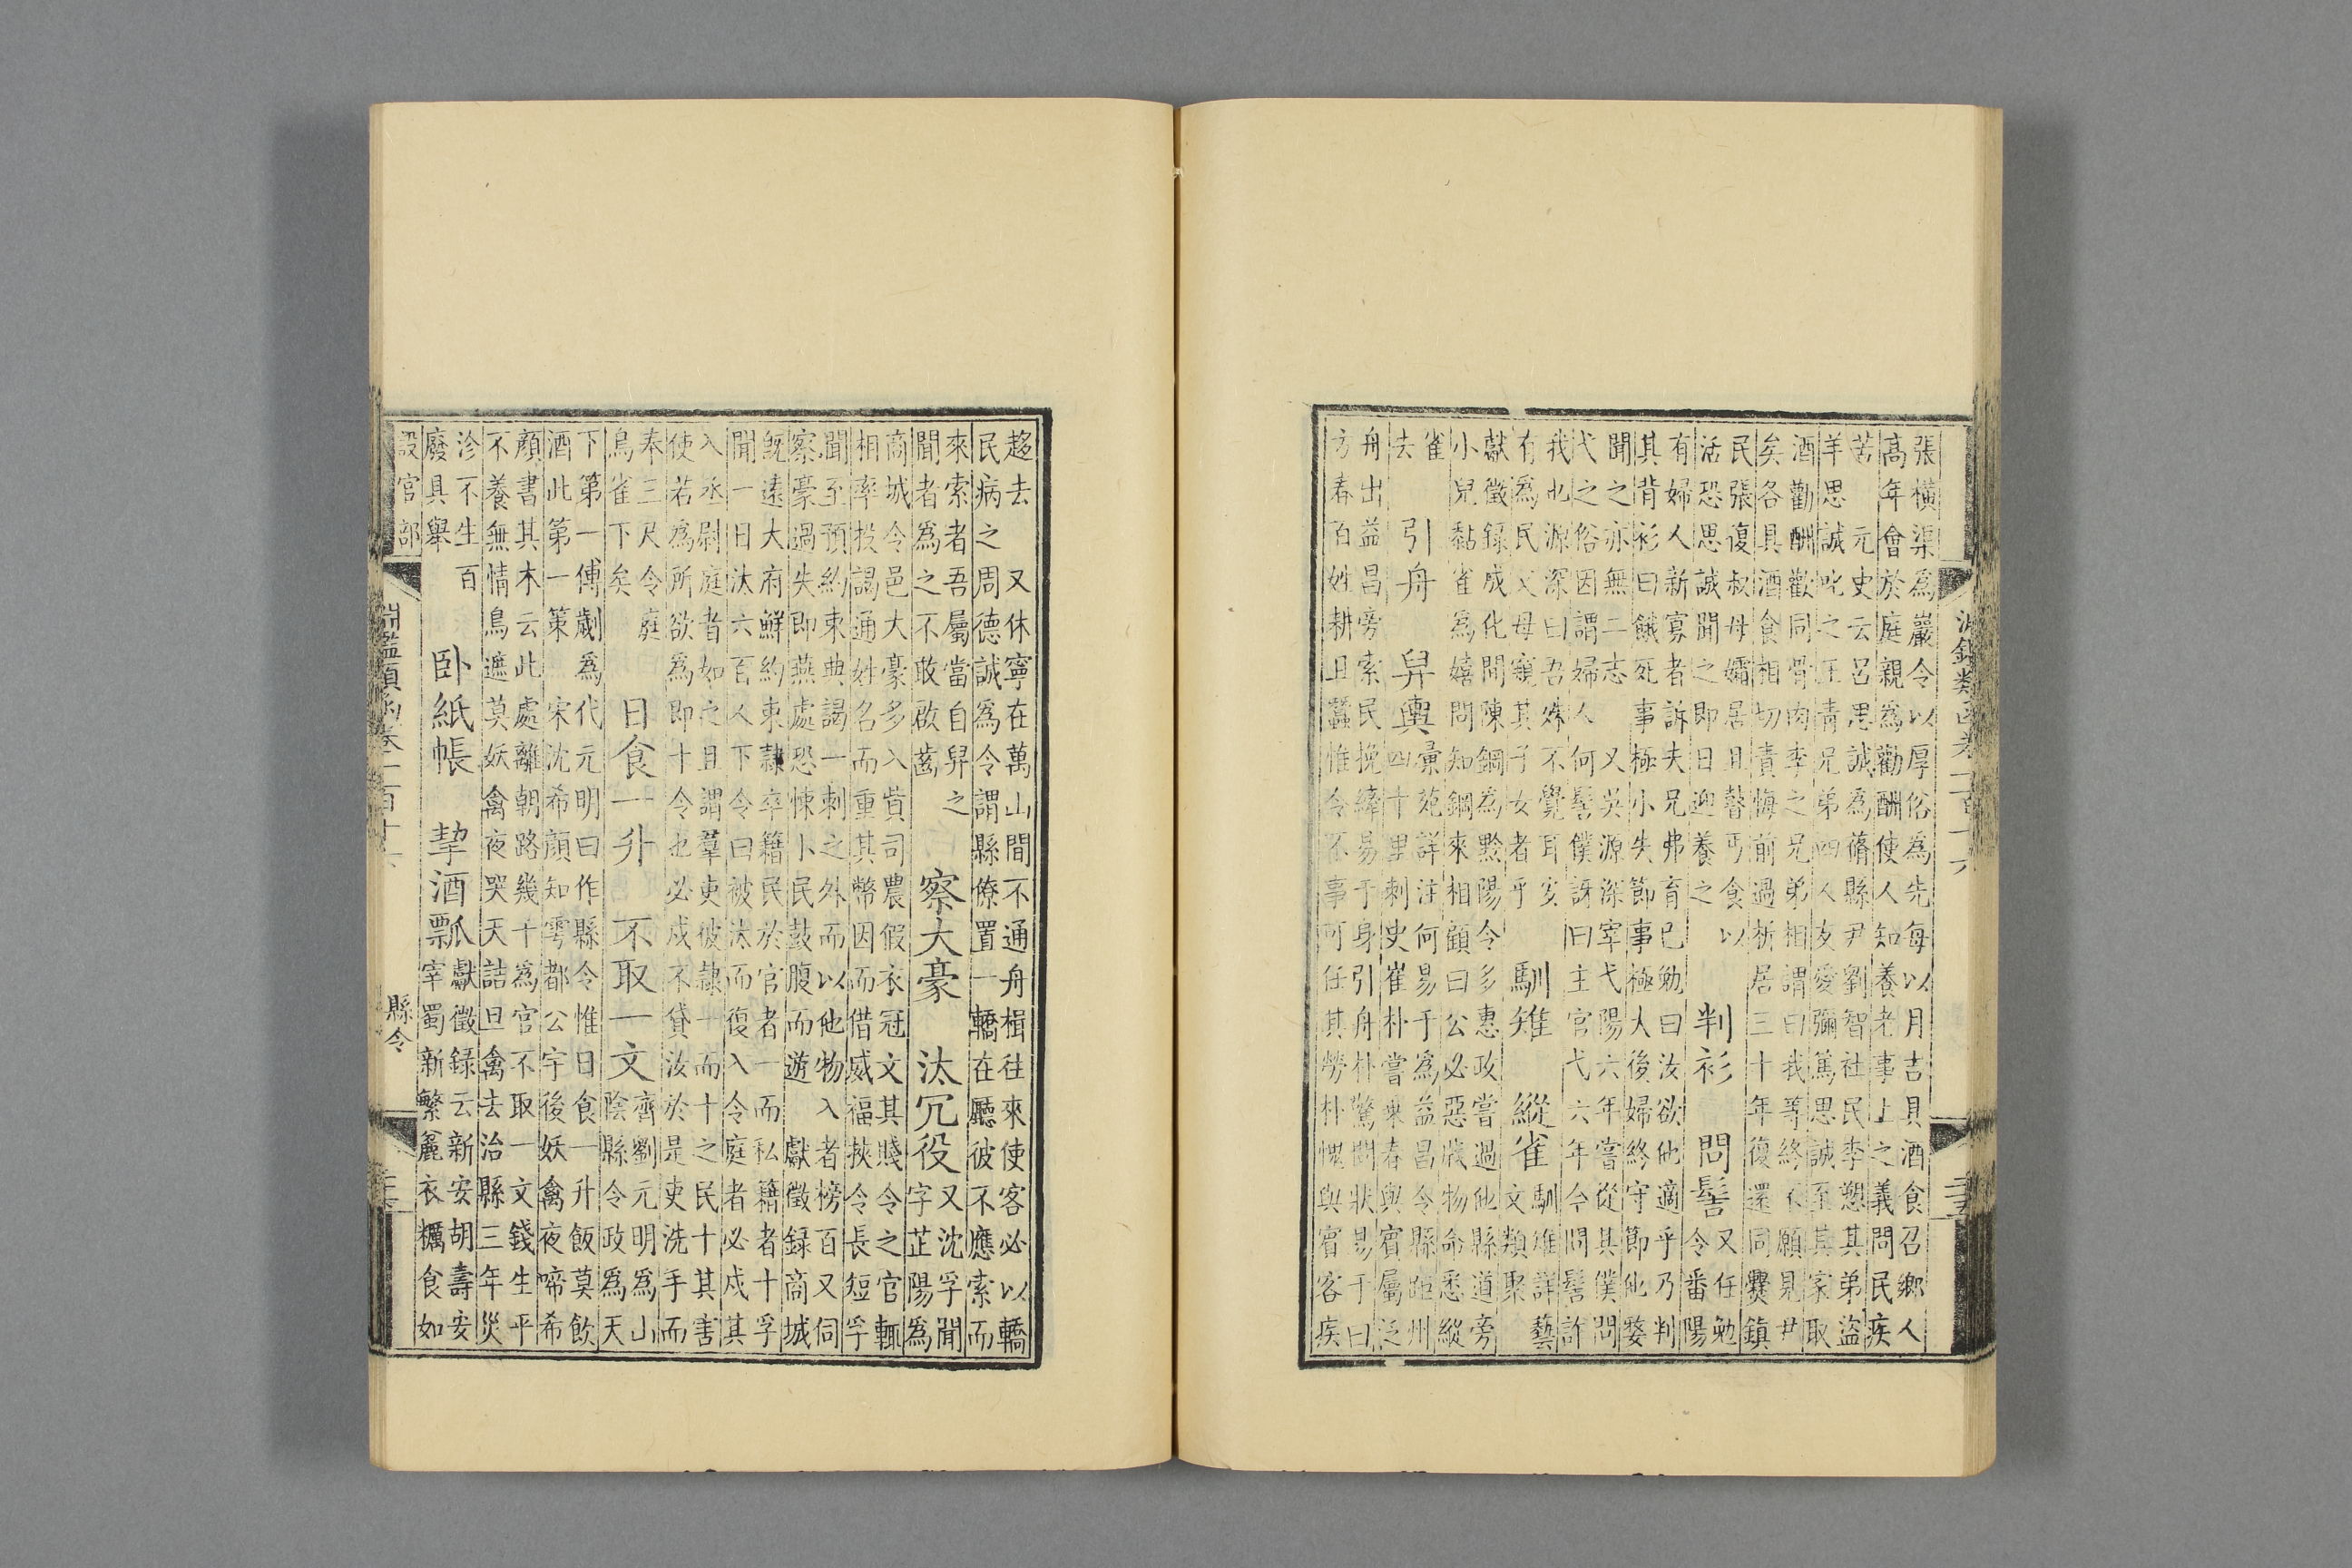 淵鑑類函卷一百十六
二五
張橫渠為巖令以厚俗為先每以月吉具酒食召鄉人
高年會於庭親為勸酬使人知養老事上之義問民疾
苦 元史云呂思誠為蓨縣尹劉智社民李恕其弟盜
羊思誠叱之王青兄弟四人友愛彌篤思誠至其家取
酒勸酬歡同骨肉李之兄弟相謂曰我等終不願見尹
矣各具酒食相切責悔前過析居三十年復還同爨鎮
民張復叔母孀居且瞽丐食以
活恐思誠聞之即日迎養之
判衫 問髻
又任勉
令番陽
有婦人新寡者訴夫兄弗育已勉曰汝欲他適乎乃判
其背衫曰餓死事極小失節事極大後婦終守節他婺
聞之亦無二志 又吳源深宰弋陽六年嘗從其僕問
弋之俗因謂婦人何髻僕訝曰主官弋六年今問髻許
我也源深曰吾殊不覺耳亥
有為民父母窺其子女者乎
馴雉 縱雀
馴雉詳藝
文類聚
獻徵録成化間陳鋼為黔陽令多惠政嘗過他縣道旁
小兒黏雀為嬉問知鋼來相顧曰公必惡戕物命悉縱
雀
去
引舟 舁輿
彙苑詳注何易于為益昌令縣距州
四十里刺史崔朴嘗乘春與賓屬泛
舟出益昌旁索民挽繂易于身引舟朴驚問狀易于曰
方春百姓耕且蠶惟令不事可任其勞朴愧與賓客疾
趨去 又休寧在萬山間不通舟楫往來使客必以轎
民病之 周德誠為令謂縣僚置一轎在廳彼不應索而
來索者吾屬當自舁之
聞者為之不敢啟齒
察大豪 汰冗役
又沈孚聞
字芷陽為
商城令邑大豪多入貲司農假衣冠文其賤令之官輒
相率投謁通姓名而重其幣因而借威福挾令長短孚
聞至預約束典謁一刺之外而以他物入者榜百又伺
察豪過失即燕處恐悚小民鼓腹而遊 獻徵録商城
既遠大府鮮約束隸卒籍民於官者一而私籍者十孚
聞一日汰六百人下令曰被汰而復入令庭者必戍其
入丞尉庭者如之且謂羣吏彼隸一而十之民十其害
使若為所欲為即十令也必戍不貸汝於是吏洗手而
奉三尺令庭
烏雀下矣
日食一升 不取一文
齊劉元明為山
陰縣令政為天
下第一傅劌為代元明曰作縣令惟日食一升飯莫飲
酒此第一策 宋沈希顏知雩都公宇後妖禽夜啼希
顏書其木云此處離朝路幾千為官不取一文錢生平
不養無情鳥遮莫妖禽夜哭天詰旦禽去治縣三年災
沴不生百
廢具舉
卧紙帳 挈酒瓢
獻徵録云新安胡壽安
宰蜀新繁麤衣糲食如
設官部
淵鑑類函卷一百十六
縣令